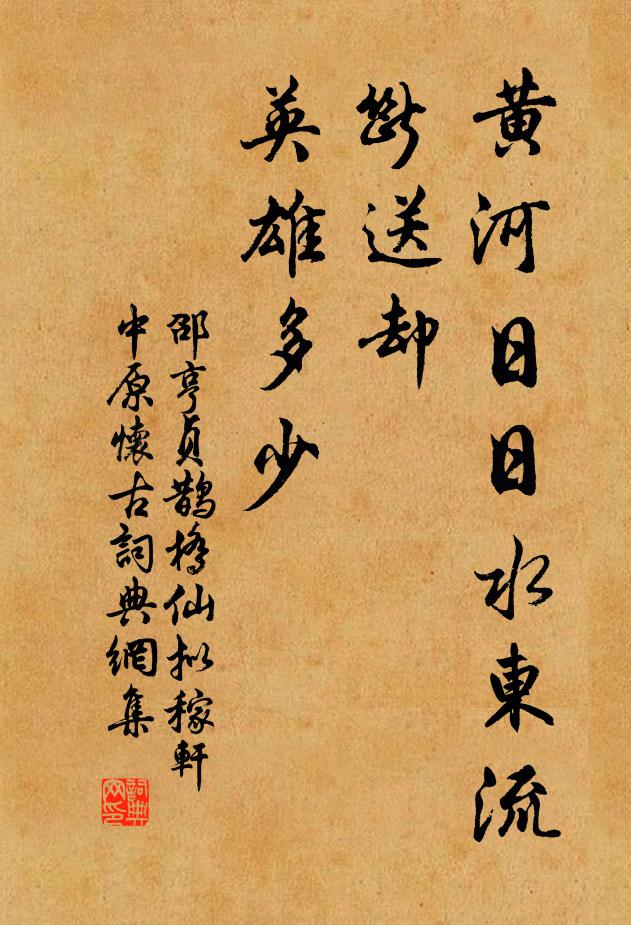 黄河日日水東流
斷送却
英雄多少
邵亨貞鵲橋仙拟稼軒
中原懷古詞典網集
詞典網印